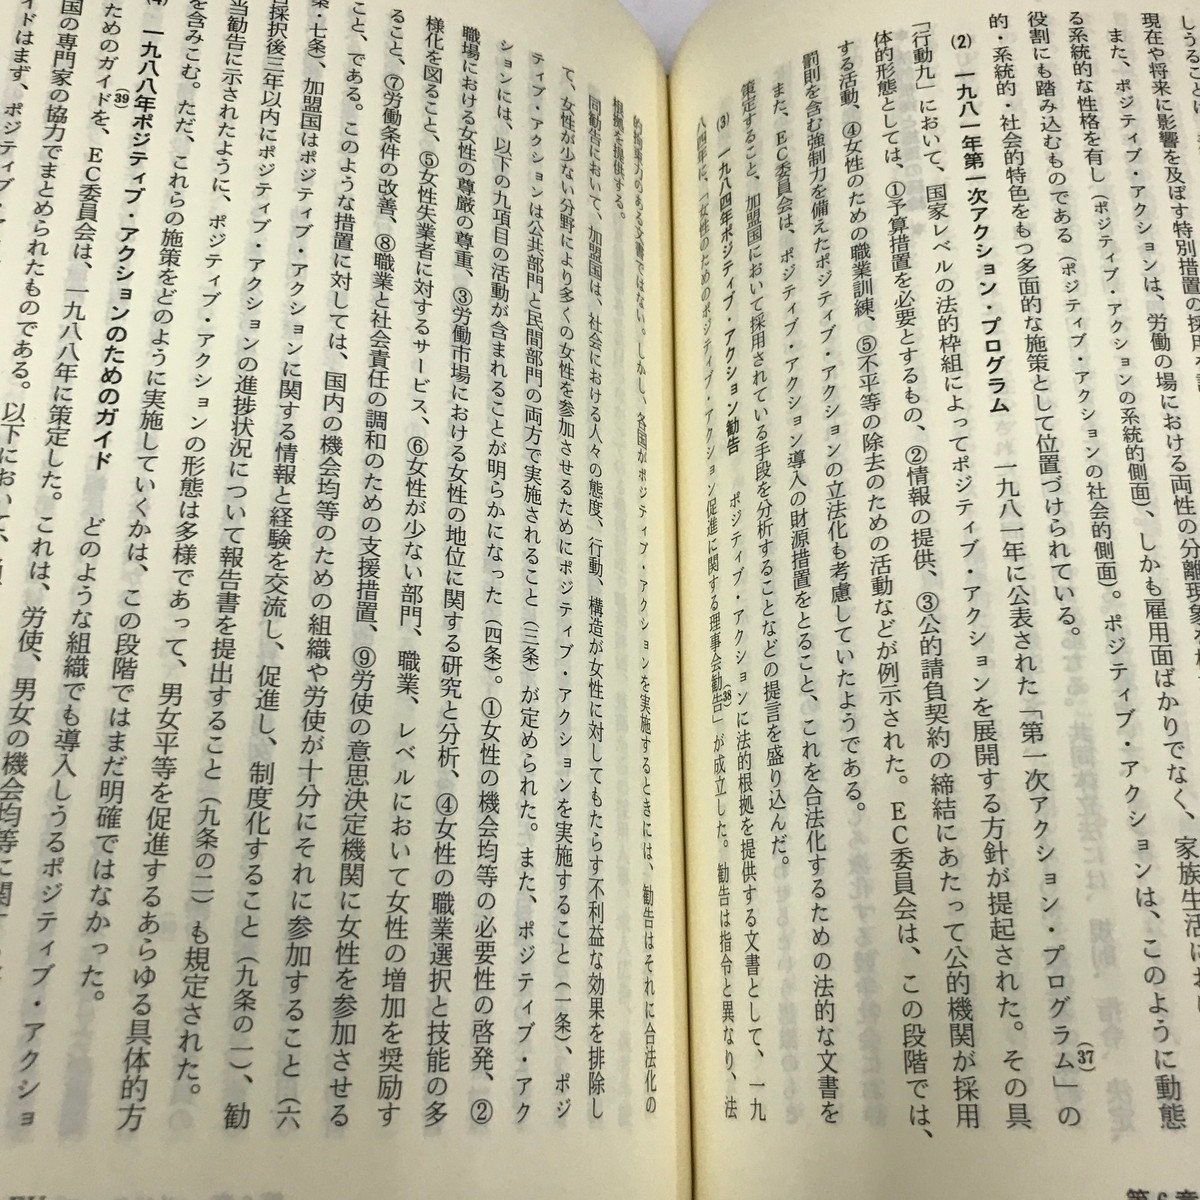 しうること
現在や将来に影響を及ぼす特別措置の採用を
また、ポジティブ・アクションは、労働の場における両性の分離現象
る系統的な性格を有し（ポジティブ・アクションの系統的側面）、しかも雇用面ばかりでなく、家族生活に
役割にも踏み込むものである（ポジティブ・アクションの社会的側面）。ポジティブ・アクションは、このように動態
的・系統的・社会的特色をもつ多面的な施策として位置づけられている。
(2) 一九八一年第一次アクション・プログラム 一九八一年に公表された「第一次アクション・プログラム」(37)の
「行動九」において、国家レベルの法的枠組によってポジティブ・アクションを展開する方針が提起された。その具
体的形態としては、①予算措置を必要とするもの、②情報の提供、③公的請負契約の締結にあたって公的機関が採用
する活動、④女性のための職業訓練、⑤不平等の除去のための活動などが例示された。EC委員会は、この段階では、
罰則を含む強制力を備えたポジティブ・アクションの立法化も考慮していたようである。
また、EC委員会は、ポジティブ・アクション導入の財源措置をとること、これを合法化するための法的な文書を
策定すること、加盟国において採用されている手段を分析することなどの提言を盛り込んだ。
(3) 一九八四年ポジティブ・アクション勧告 ポジティブ・アクションに法的根拠を提供する文書として、一九
八四年に、「女性のためのポジティブ・アクション促進に関する理事会勧告」(38)が成立した。勧告は指令と異なり、法
的拘束力のある文書ではない。しかし、各国がポジティブ・アクションを実施するときには、勧告はそれに合法化の
根拠を提供する。
同勧告において、加盟国は、社会における人々の態度、行動、構造が女性に対してもたらす不利益な効果を排除し
て、女性が少ない分野により多くの女性を参加させるためにポジティブ・アクションを実施すること（一条）、ポジ
ティブ・アクションは公共部門と民間部門の両方で実施されること（三条）が定められた。また、ポジティブ・アク
ションには、以下の九項目の活動が含まれることが明らかになった（四条）。①女性の機会均等の必要性の啓発、②
職場における女性の尊厳の尊重、③労働市場における女性の地位に関する研究と分析、④女性の職業選択と技能の多
様化を図ること、⑤女性失業者に対するサービス、⑥女性が少ない部門、職業、レベルにおいて女性の増加を奨励す
ること、⑦労働条件の改善、⑧職業と社会責任の調和のための支援措置、⑨労使の意思決定機関に女性を参加させる
こと、である。このような措置に対しては、国内の機会均等のための組織や労使が十分にそれに参加すること（六
条・七条）、加盟国はポジティブ・アクションに関する情報と経験を交流し、促進し、制度化すること（九条の一）、勧
告採択後三年以内にポジティブ・アクションの進捗状況について報告書を提出すること（九条の二）も規定された。
当勧告に示されたように、ポジティブ・アクションの形態は多様であって、男女平等を促進するあらゆる具体的方
を含みこむ。ただ、これらの施策をどのように実施していくかは、この段階ではまだ明確ではなかった。
(4) 一九八八年ポジティブ・アクションのためのガイド どのような組織でも導入しうるポジティブ・アクショ
ためのガイド(39)を、EC委員会は、一九八八年に策定した。これは、労使、男女の機会均等に関
国の専門家の協力でまとめられたものである。以下において、
イドはまず、ポジティブ・ア